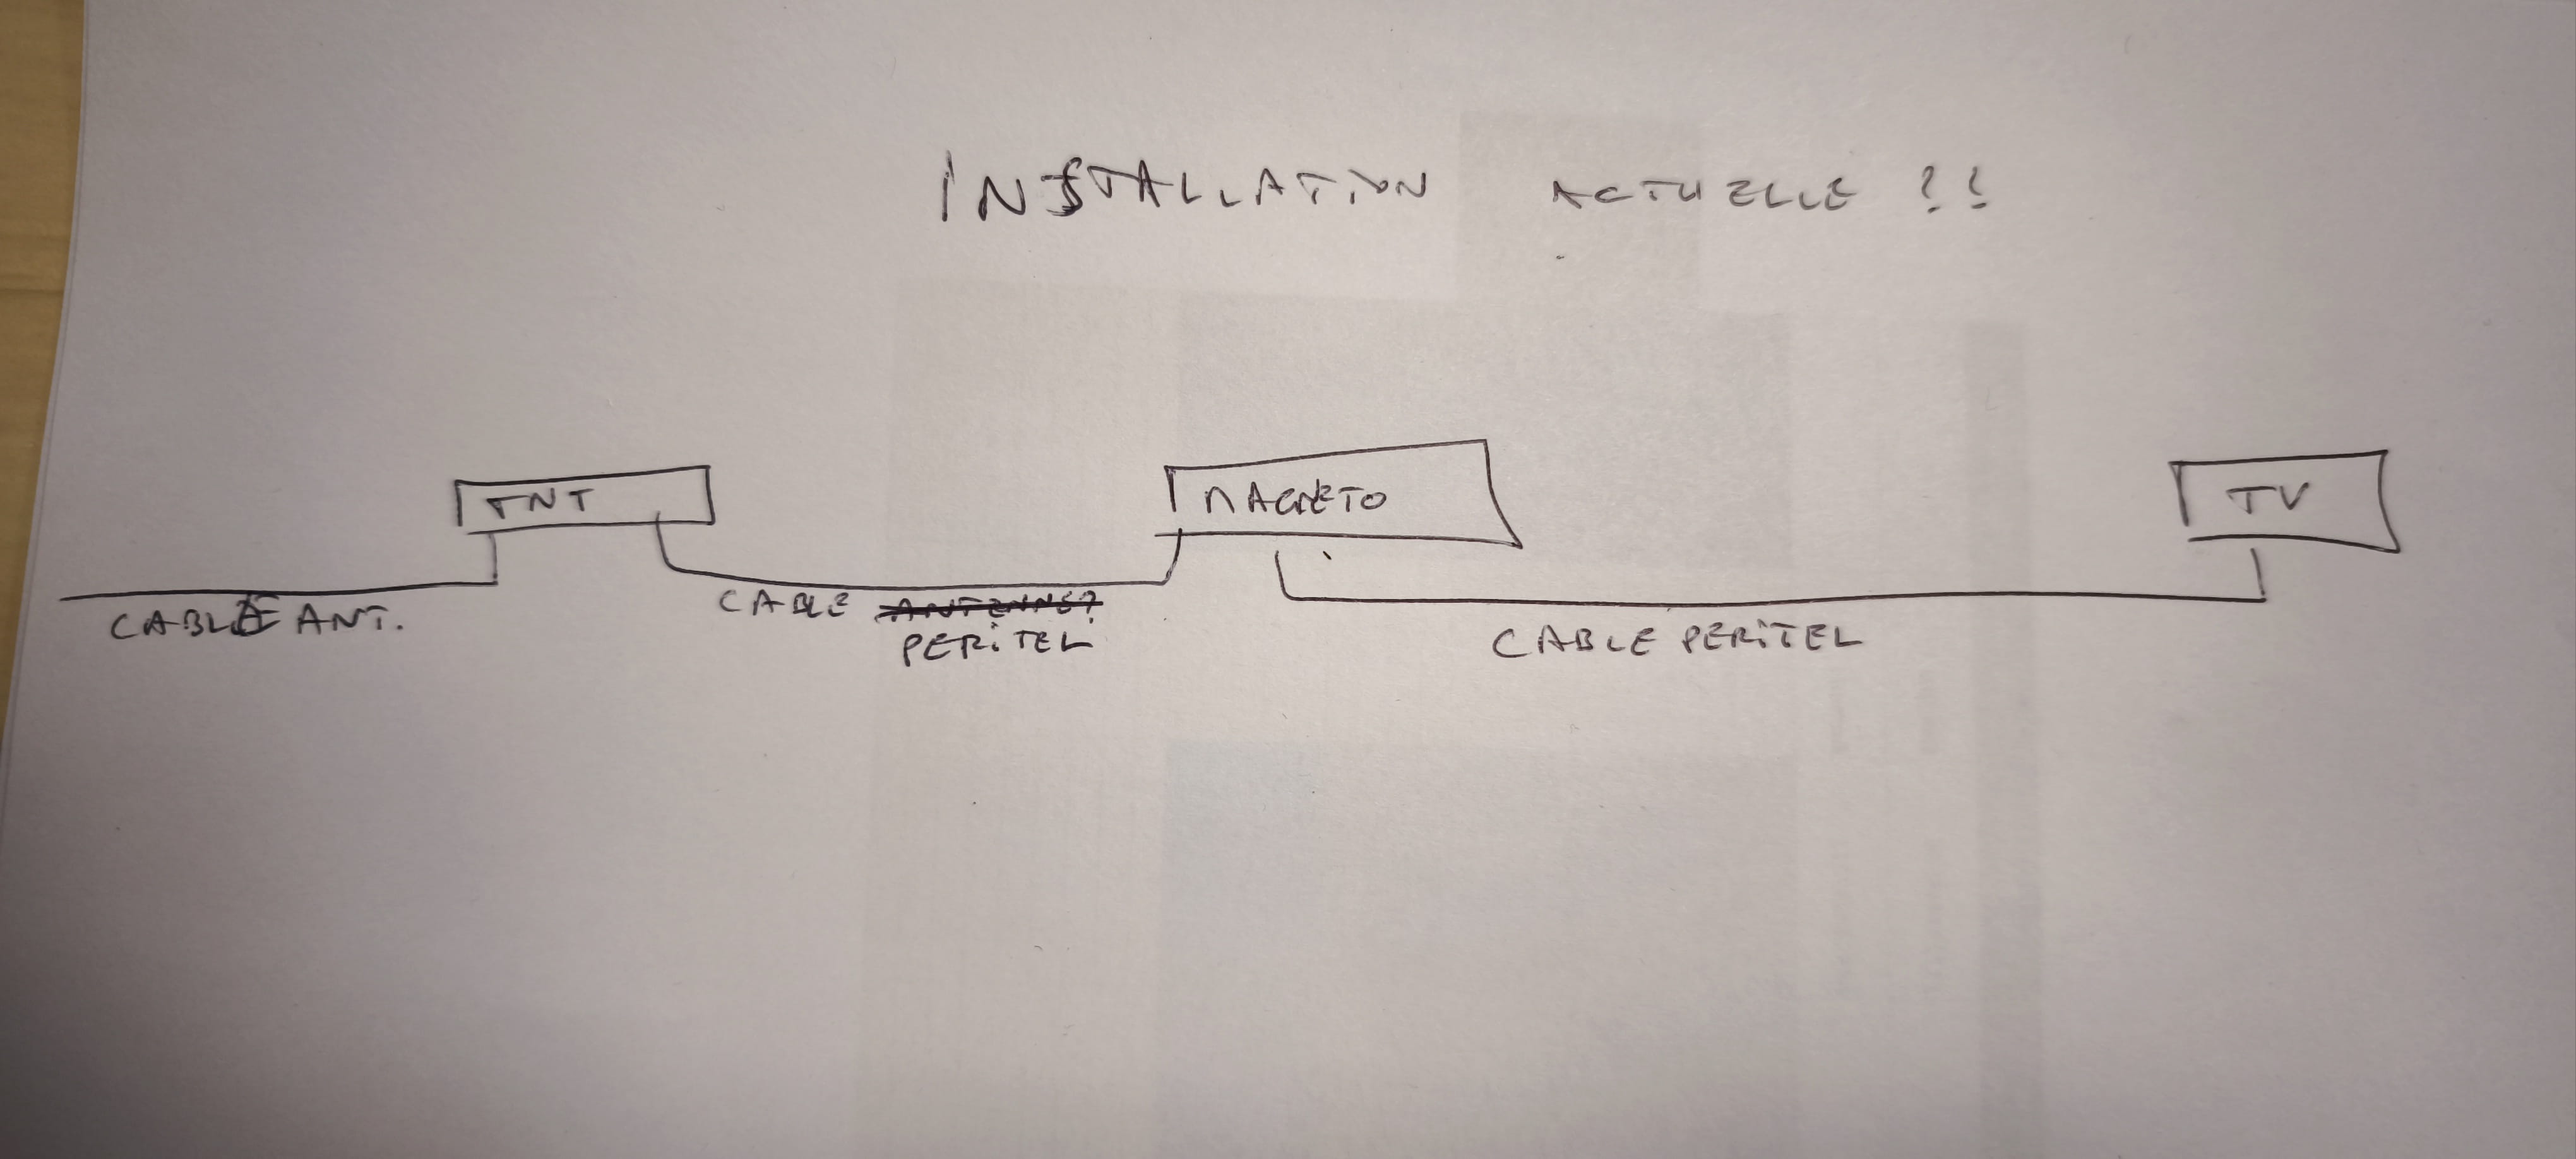 INSTALLATION ACTUELLE ??
TNT
MAGNETO
TV
CABLE ANT.
CABLE ANTENNE?
PERITEL
CABLE PERITEL